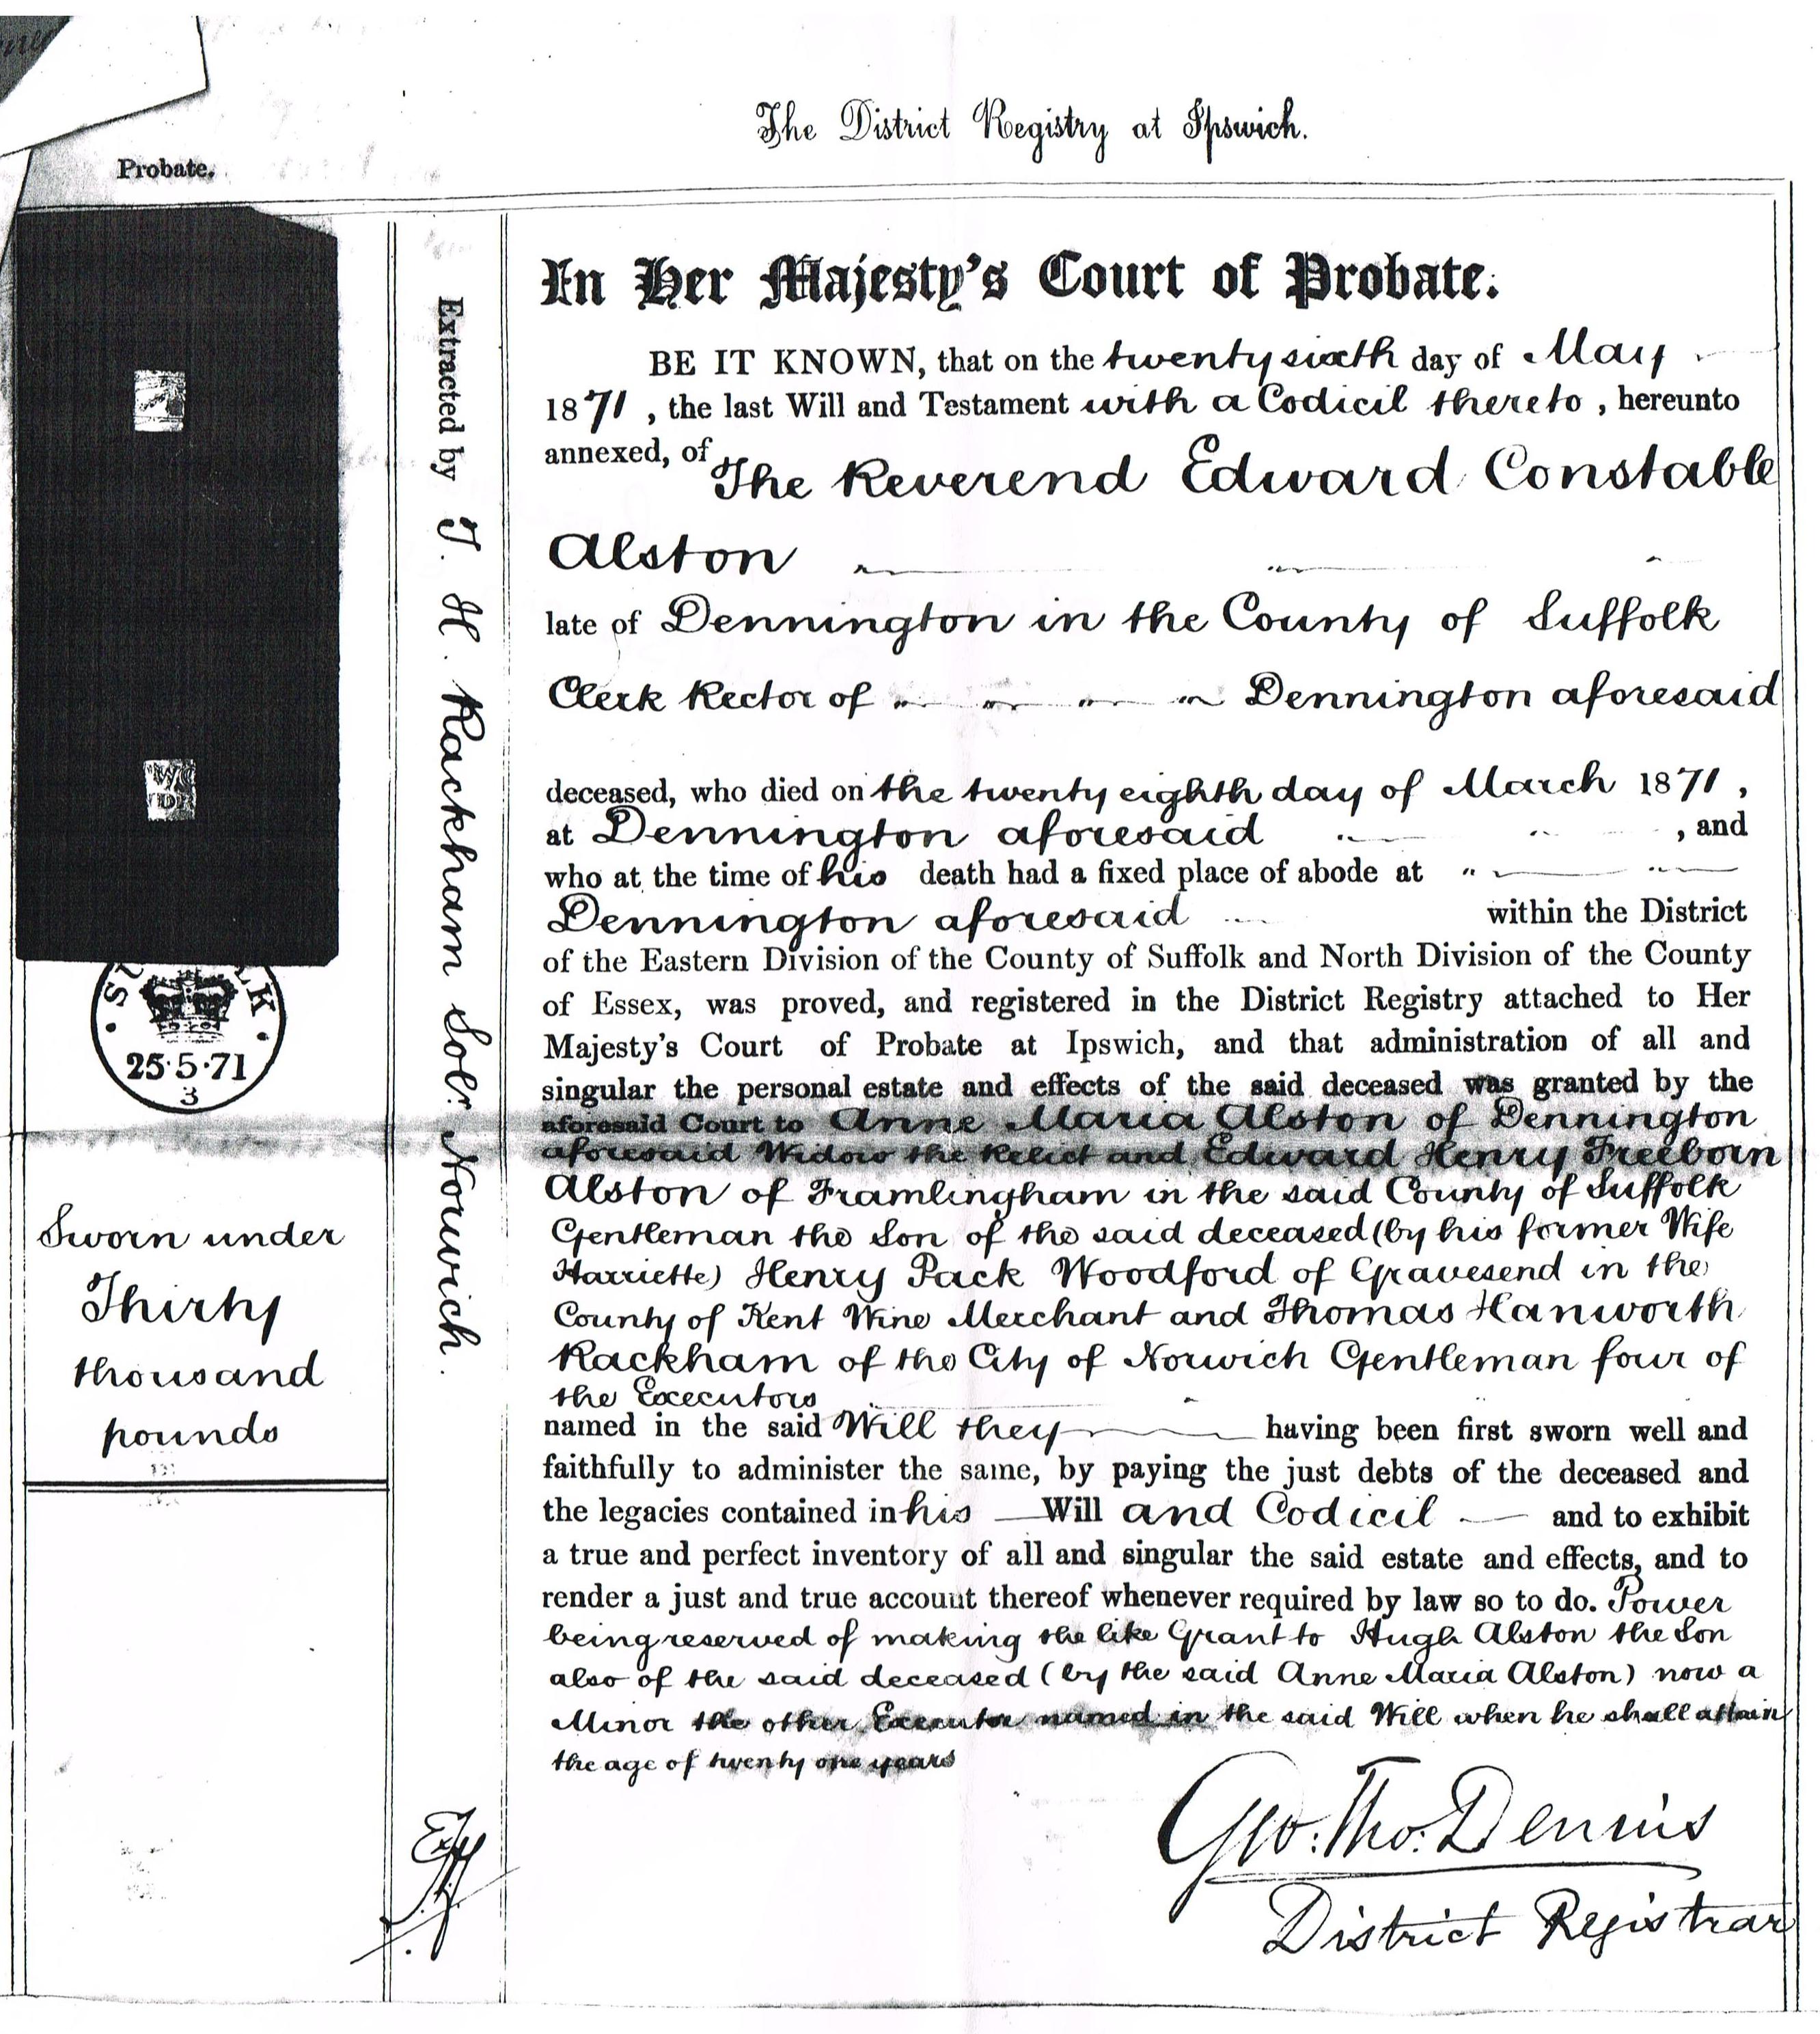 The District Registry at Ipswich.
Probate.
In Her Majesty's Court of Probate.
BE IT KNOWN, that on the twenty sixth day of May
1871, the last Will and Testament with a Codicil thereto, hereunto
annexed, of The Reverend Edward Constable
Alston
late of Dennington in the County of Suffolk
Clerk Rector of Dennington aforesaid
deceased, who died on the twenty eighth day of March 1871,
at Dennington aforesaid , and
who at the time of his death had a fixed place of abode at
Dennington aforesaid within the District
of the Eastern Division of the County of Suffolk and North Division of the County
of Essex, was proved, and registered in the District Registry attached to Her
Majesty's Court of Probate at Ipswich, and that administration of all and
singular the personal estate and effects of the said deceased was granted by the
aforesaid Court to Anne Maria Alston of Dennington
aforesaid Widow the Relict and Edward Henry Freeborn
Alston of Framlingham in the said County of Suffolk
Gentleman the Son of the said deceased (by his former Wife
Harriette) Henry Pack Woodford of Gravesend in the
County of Kent Wine Merchant and Thomas Hanworth
Rackham of the City of Norwich Gentleman four of
the Executors
named in the said Will they having been first sworn well and
faithfully to administer the same, by paying the just debts of the deceased and
the legacies contained in his Will and Codicil and to exhibit
a true and perfect inventory of all and singular the said estate and effects, and to
render a just and true account thereof whenever required by law so to do. Power
being reserved of making the like Grant to Hugh Alston the Son
also of the said deceased (by the said Anne Maria Alston) now a
Minor the other Executor named in the said Will when he shall attain
the age of twenty one years
Geo: Tho: Dennis
District Registrar
Extracted by T. H. Rackham Solr. Norwich.
25·5·71
3
Sworn under
Thirty
thousand
pounds